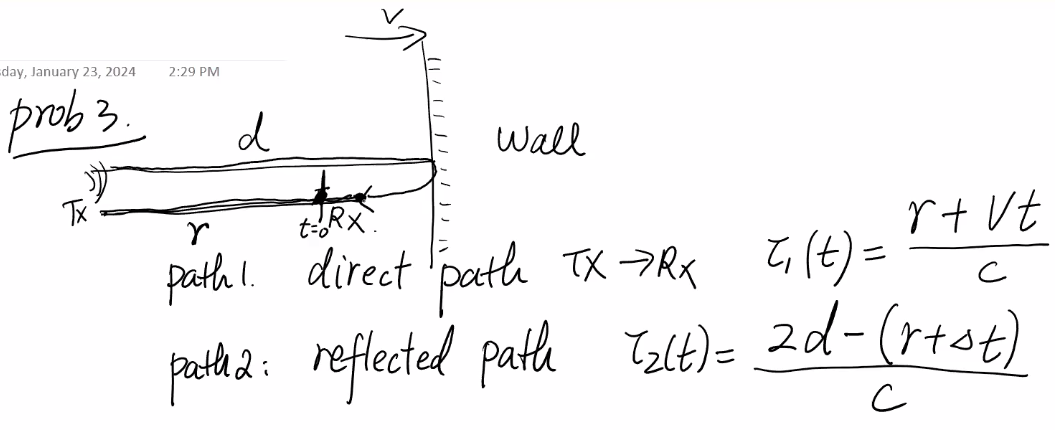 V
sday, January 23, 2024 2:29 PM
prob 3.
d
Wall
Tx
r
t=0 Rx.
path 1. direct path Tx → Rx τ₁(t) = (r + Vt)/c
path 2: reflected path τ₂(t) = (2d - (r+Δt))/c